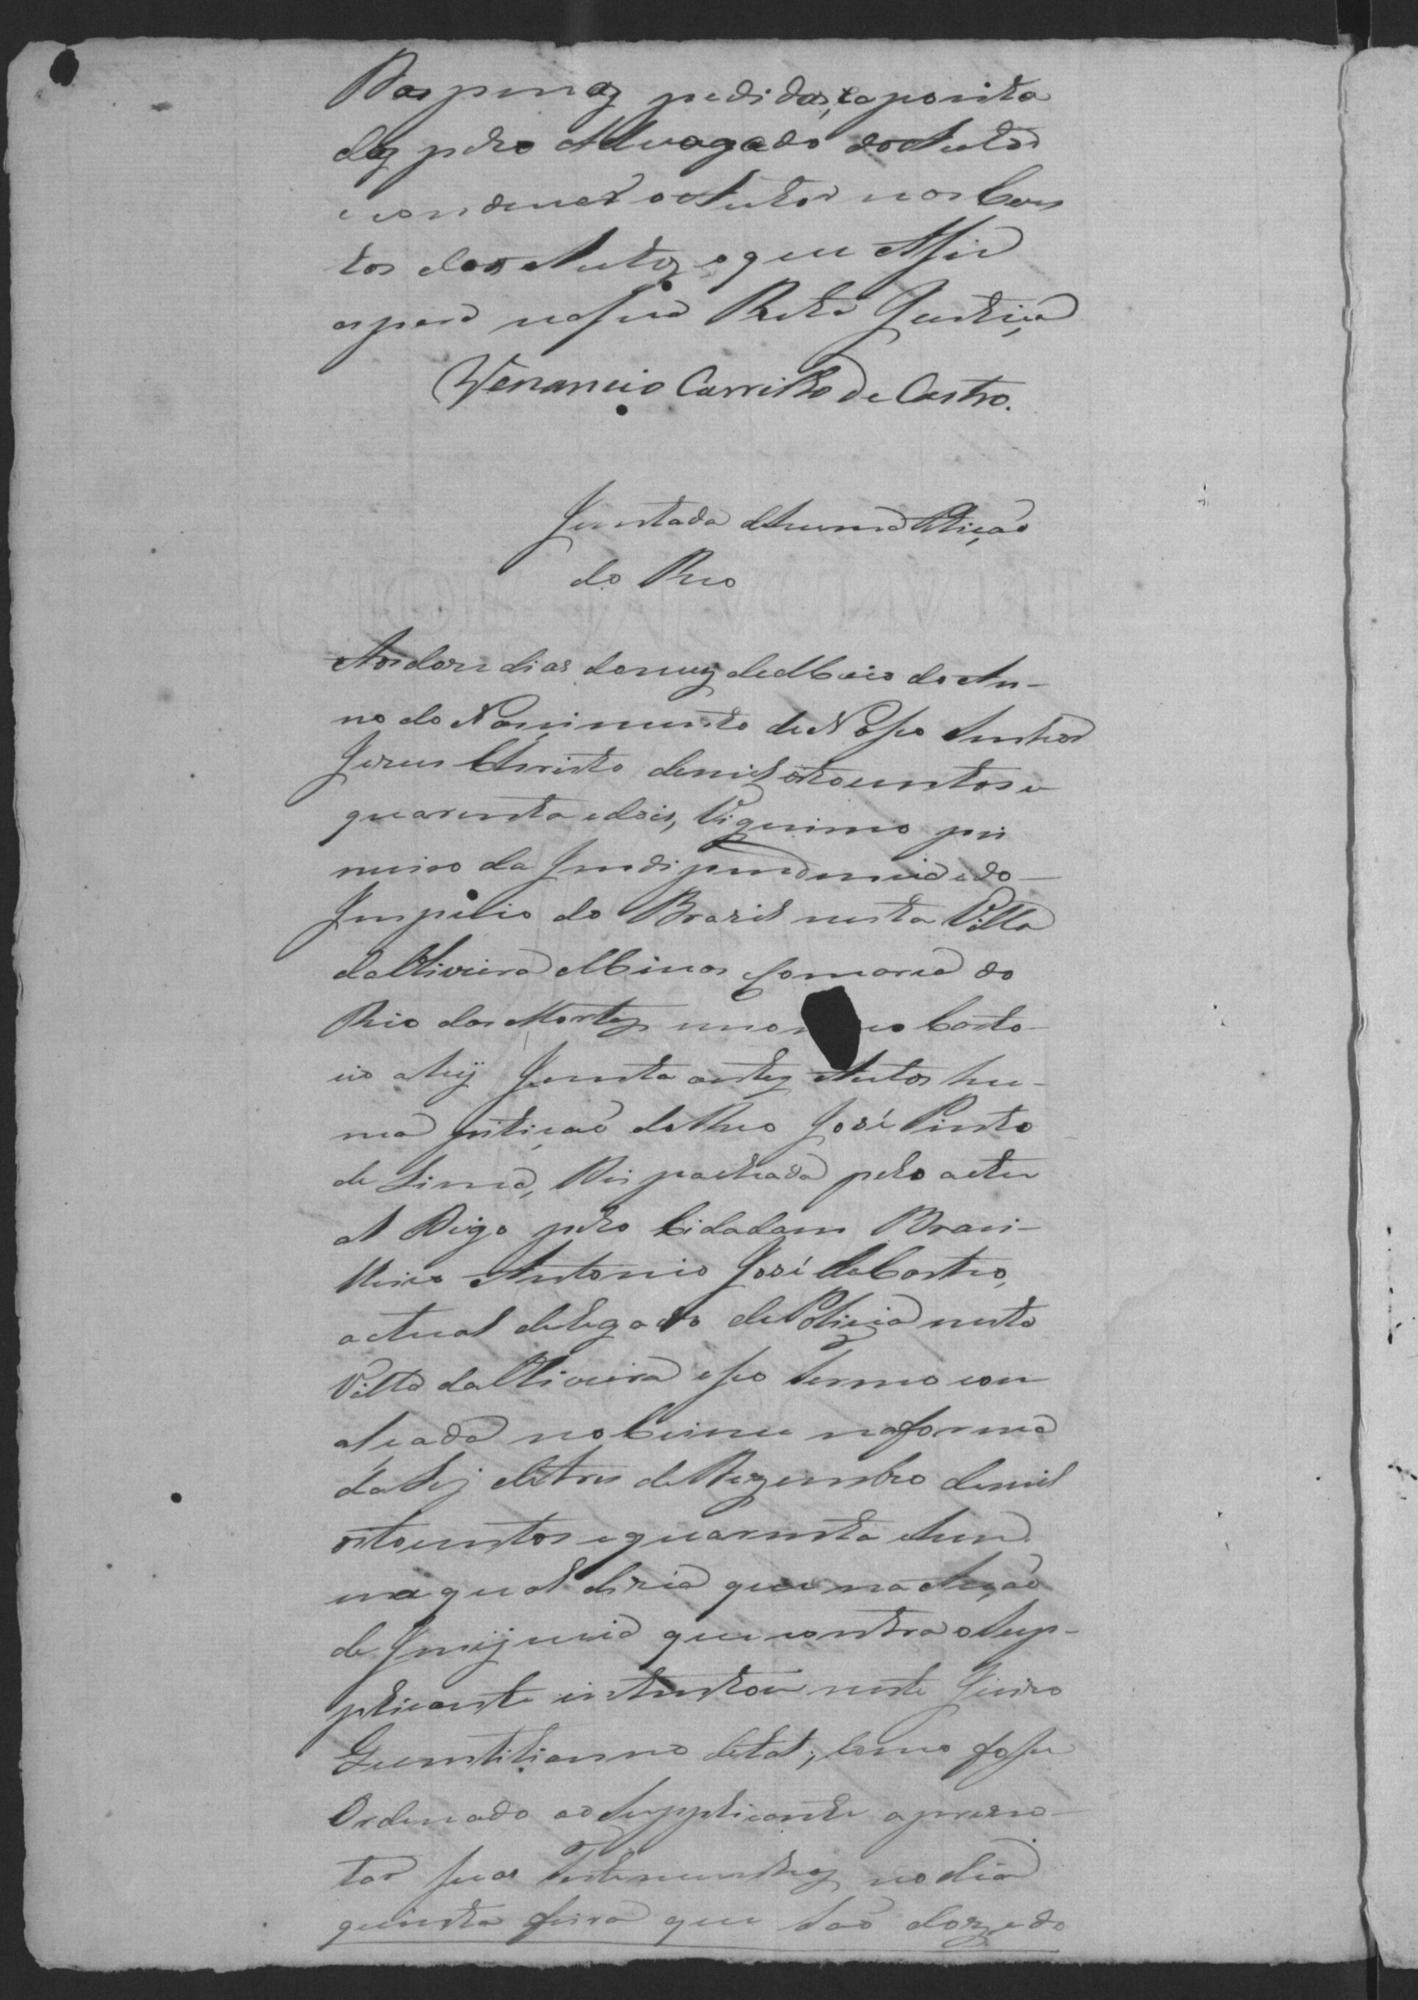 Das penas pedidas, e aponta
das pelo Advogado do Autor
e condenar o Autor nas Cus
tas dos Autos, o que Assim
espera na sua Recta Justiça
Venancio Carrilho de Castro.
Juntada de huma Petição
do Reo
Aos doze dias do mez de Maio do An-
no do Nascimento de Nosso Senhor
Jesus Christo de mil oitocentos e
quarenta e dois, Vigesimo pri
meiro da Independencia e do
Imperio do Brazil nesta Villa
da Oliveira Minas Comarca do
Rio das Mortes em o meo Carto-
rio ahy Junto a estes Autos hu-
ma petição do Reo José Pinto
de Lima, Despachada pelo actu
al Digo pelo Cidadam Brasi-
lleiro Antonio José de Castro,
actual delegado de Policia nesta
Villa da Oliveira e seo termo com
alçada no Crime na forma
da Ley de tres de Dezembro de mil
oitocentos e quarenta e hum
na qual dizia que na Acção
de Injuria que contra o Sup-
plicante intentou neste Juizo
Quintiliano de tal; como fosse
Ordenado ao Supplicante apresen-
tar suas Testemunhas no dia
quinta feira que são doze do